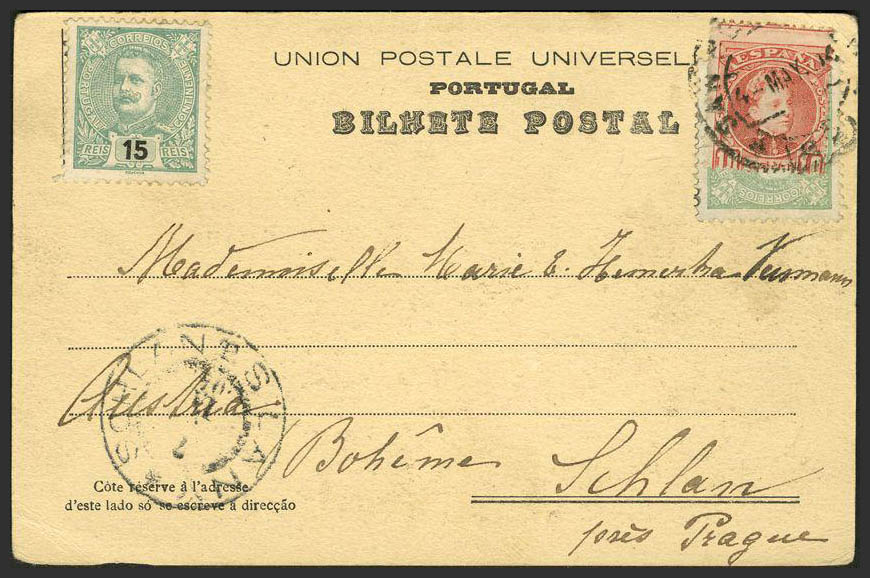 CORREIOS
15
REIS REIS
UNION POSTALE UNIVERSEL
PORTUGAL
BILHETE POSTAL
ESPAÑA
CORREIOS
Mademoiselle Marie E.
Austria
SCHLAN SLANÝ
Bohême
Schlan
près Prague
Côte réservé à l'adresse
d'este lado só se escreve a direcção